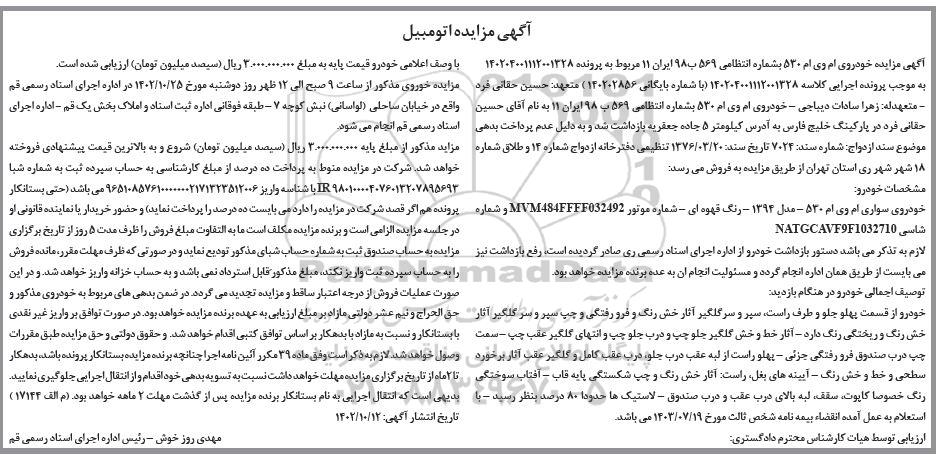 آگهی مزایده اتومبیل
آگهی مزایده خودروی ام وی ام ۵۳۰ بشماره انتظامی ۵۶۹ ب۹۸ ایران ۱۱ مربوط به پرونده ۱۴۰۲۰۴۰۰۱۱۱۲۰۰۱۳۲۸
به موجب پرونده اجرایی کلاسه ۱۴۰۲۰۴۰۰۱۱۱۲۰۰۱۳۲۸ (با شماره بایگانی ۱۴۰۲۰۲۸۵۶) متعهد: حسین حقانی فرد
– متعهدله: زهرا سادات دیباجی – خودروی ام وی ام ۵۳۰ بشماره انتظامی ۵۶۹ ب ۹۸ ایران ۱۱ به نام آقای حسین
حقانی فرد در پارکینگ خلیج فارس به آدرس کیلومتر ۵ جاده جعفریه بازداشت شد و به دلیل عدم پرداخت بدهی
موضوع سند ازدواج: شماره سند: ۷۰۲۴ تاریخ سند: ۱۳۷۶/۰۳/۲۰ تنظیمی دفترخانه ازدواج شماره ۱۴ و طلاق شماره
۱۸ شهر شهر ری استان تهران از طریق مزایده به فروش می رسد:
مشخصات خودرو:
خودروی سواری ام وی ام ۵۳۰ – مدل ۱۳۹۴ – رنگ قهوه ای – شماره موتور MVM484FFFF032492 و شماره
شاسی NATGCAVF9F1032710
لازم به تذکر می باشد دستور بازداشت خودرو از اداره اجرای اسناد رسمی ری صادر گردیده است، رفع بازداشت نیز
می بایست از طریق همان اداره انجام گردد و مسئولیت انجام ان به عده برنده مزایده خواهد بود.
توصیف اجمالی خودرو در هنگام بازدید:
خودرو از قسمت پهلو جلو و طرف راست، سپر و سر گلگیر آثار خش رنگ و فرو رفتگی و چپ سپر و سر گلگیر آثار
خش رنگ و ریختگی رنگ دارد – آثار خط و خش گلگیر جلو چپ و درب جلو چپ و انتهای گلگیر عقب چپ – سمت
چپ درب صندوق فرو رفتگی جزئی – پهلو راست از لبه عقب درب جلو، درب عقب کامل و گلگیر عقب آثار برخورد
سطحی و خط و خش رنگ – آیینه های بغل، راست: آثار خش رنگ و چپ شکستگی پایه قاب – آفتاب سوختگی
رنگ خصوصا کاپوت، سقف، لبه بالای درب عقب و درب صندوق – لاستیک ها حدودا ۸۰ درصد بنظر رسید – با
استعلام به عمل آمده انقضاء بیمه نامه شخص ثالث مورخ ۱۴۰۳/۰۷/۱۹ می باشد.
ارزیابی توسط هیات کارشناس محترم دادگستری:
با وصف اعلامی خودرو قیمت پایه به مبلغ ۳.۰۰۰.۰۰۰.۰۰۰ ریال (سیصد میلیون تومان) ارزیابی شده است.
مزایده خوروی مذکور از ساعت ۹ صبح الی ۱۲ ظهر روز دوشنبه مورخ ۱۴۰۲/۱۰/۲۵ در اداره اجرای اسناد رسمی قم
واقع در خیابان ساحلی (لواسانی) نبش کوچه ۷ – طبقه فوقانی اداره ثبت اسناد و املاک بخش یک قم – اداره اجرای
اسناد رسمی قم انجام می شود.
مزاید مذکور از مبلغ پایه ۳.۰۰۰.۰۰۰.۰۰۰ ریال (سیصد میلیون تومان) شروع و به بالاترین قیمت پیشنهادی فروخته
خواهد شد. شرکت در مزایده منوط به پرداخت ده درصد از مبلغ کارشناسی به حساب سپرده ثبت به شماره شبا
IR۹۸۰۱۰۰۰۰۴۰۷۶۰۱۳۲۰۷۸۹۵۶۹۳ با شناسه واریز ۹۶۵۱۰۸۵۷۶۱۰۰۰۰۰۰۰۲۱۷۱۳۲۳۵۱۲۰۰۶ می باشد (حتی بستانکار
پرونده هم اگر قصد شرکت در مزایده را دارد می بایست ده درصد را پرداخت نماید) و حضور خریدار یا نماینده قانونی او
در جلسه مزایده الزامی است و برنده مزایده مکلف است ما به التفاوت مبلغ فروش را ظرف مدت ۵ روز از تاریخ برگزاری
مزایده به حساب صندوق ثبت به شماره حساب شبای مذکور تودیع نماید و در صورتی که ظرف مهلت مقرر، مانده فروش
را به حساب سپرده ثبت واریز نکند، مبلغ مذکور قابل استرداد نمی باشد و به حساب خزانه واریز خواهد شد. و در این
صورت عملیات فروش از درجه اعتبار ساقط و مزایده تجدید می گردد. در ضمن بدهی های مربوط به خودروی مذکور و
حق الحراج و نیم عشر دولتی مازاد بر مبلغ ارزیابی به عهده برنده مزایده خواهد بود. در صورت توافق بر واریز غیر نقدی
با بستانکار و نسبت به مازاد با بدهکار بر اساس توافق کتبی اقدام خواهد شد. و حقوق دولتی و حق مزایده طبق مقررات
وصول خواهد شد. لازم به ذکر است وفق ماده ۳۹ مکرر آئین نامه اجرا چنانچه برنده مزایده بستانکار پرونده باشد، بدهکار
تا ۲ ماه از تاریخ برگزاری مزایده مهلت خواهد داشت نسبت به تسویه بدهی خود اقدام و از انتقال اجرایی جلوگیری نمایید.
بدیهی است که انتقال اجرایی به نام بستانکار برنده مزایده پس از گذشت مهلت ۲ ماهه خواهد بود. (م الف ۱۷۱۴۴)
تاریخ انتشار آگهی: ۱۴۰۲/۱۰/۱۲
مهدی روز خوش – رئیس اداره اجرای اسناد رسمی قم